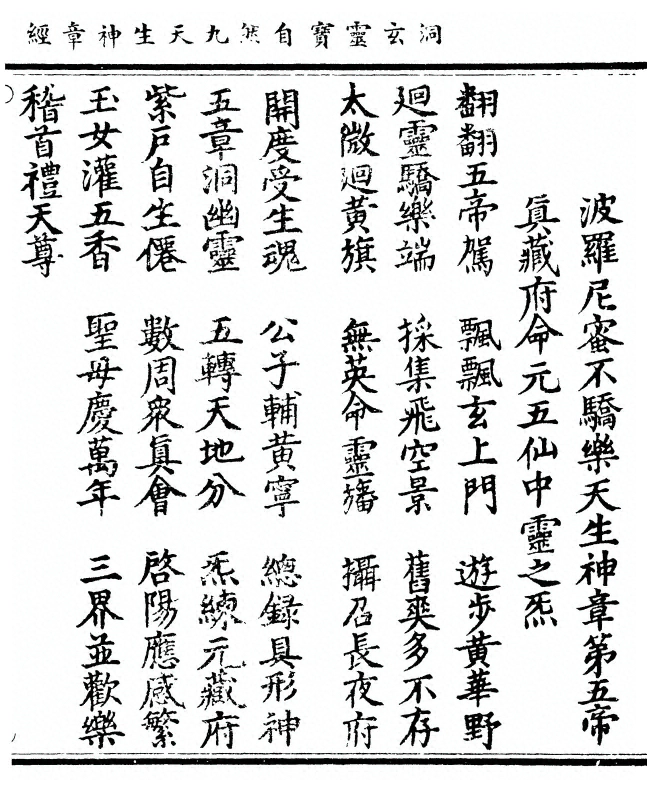 洞玄靈寶自然九天生神章經
波羅尼蜜不驕樂天生神章第五帝
真藏府命元五仙中靈之炁
翻翻五帝駕 飄飄玄上門 遊步黃華野
迴靈驕樂端 採集飛空景 舊爽多不存
太微迴黃旗 無英命靈旛 攝召長夜府
開度受生魂 公子輔黃寧 總錄具形神
五章洞幽靈 五轉天地分 炁練元藏府
紫戶自生僊 數周衆真會 啓陽應感繁
玉女灌五香 聖母慶萬年 三界並歡樂
稽首禮天尊